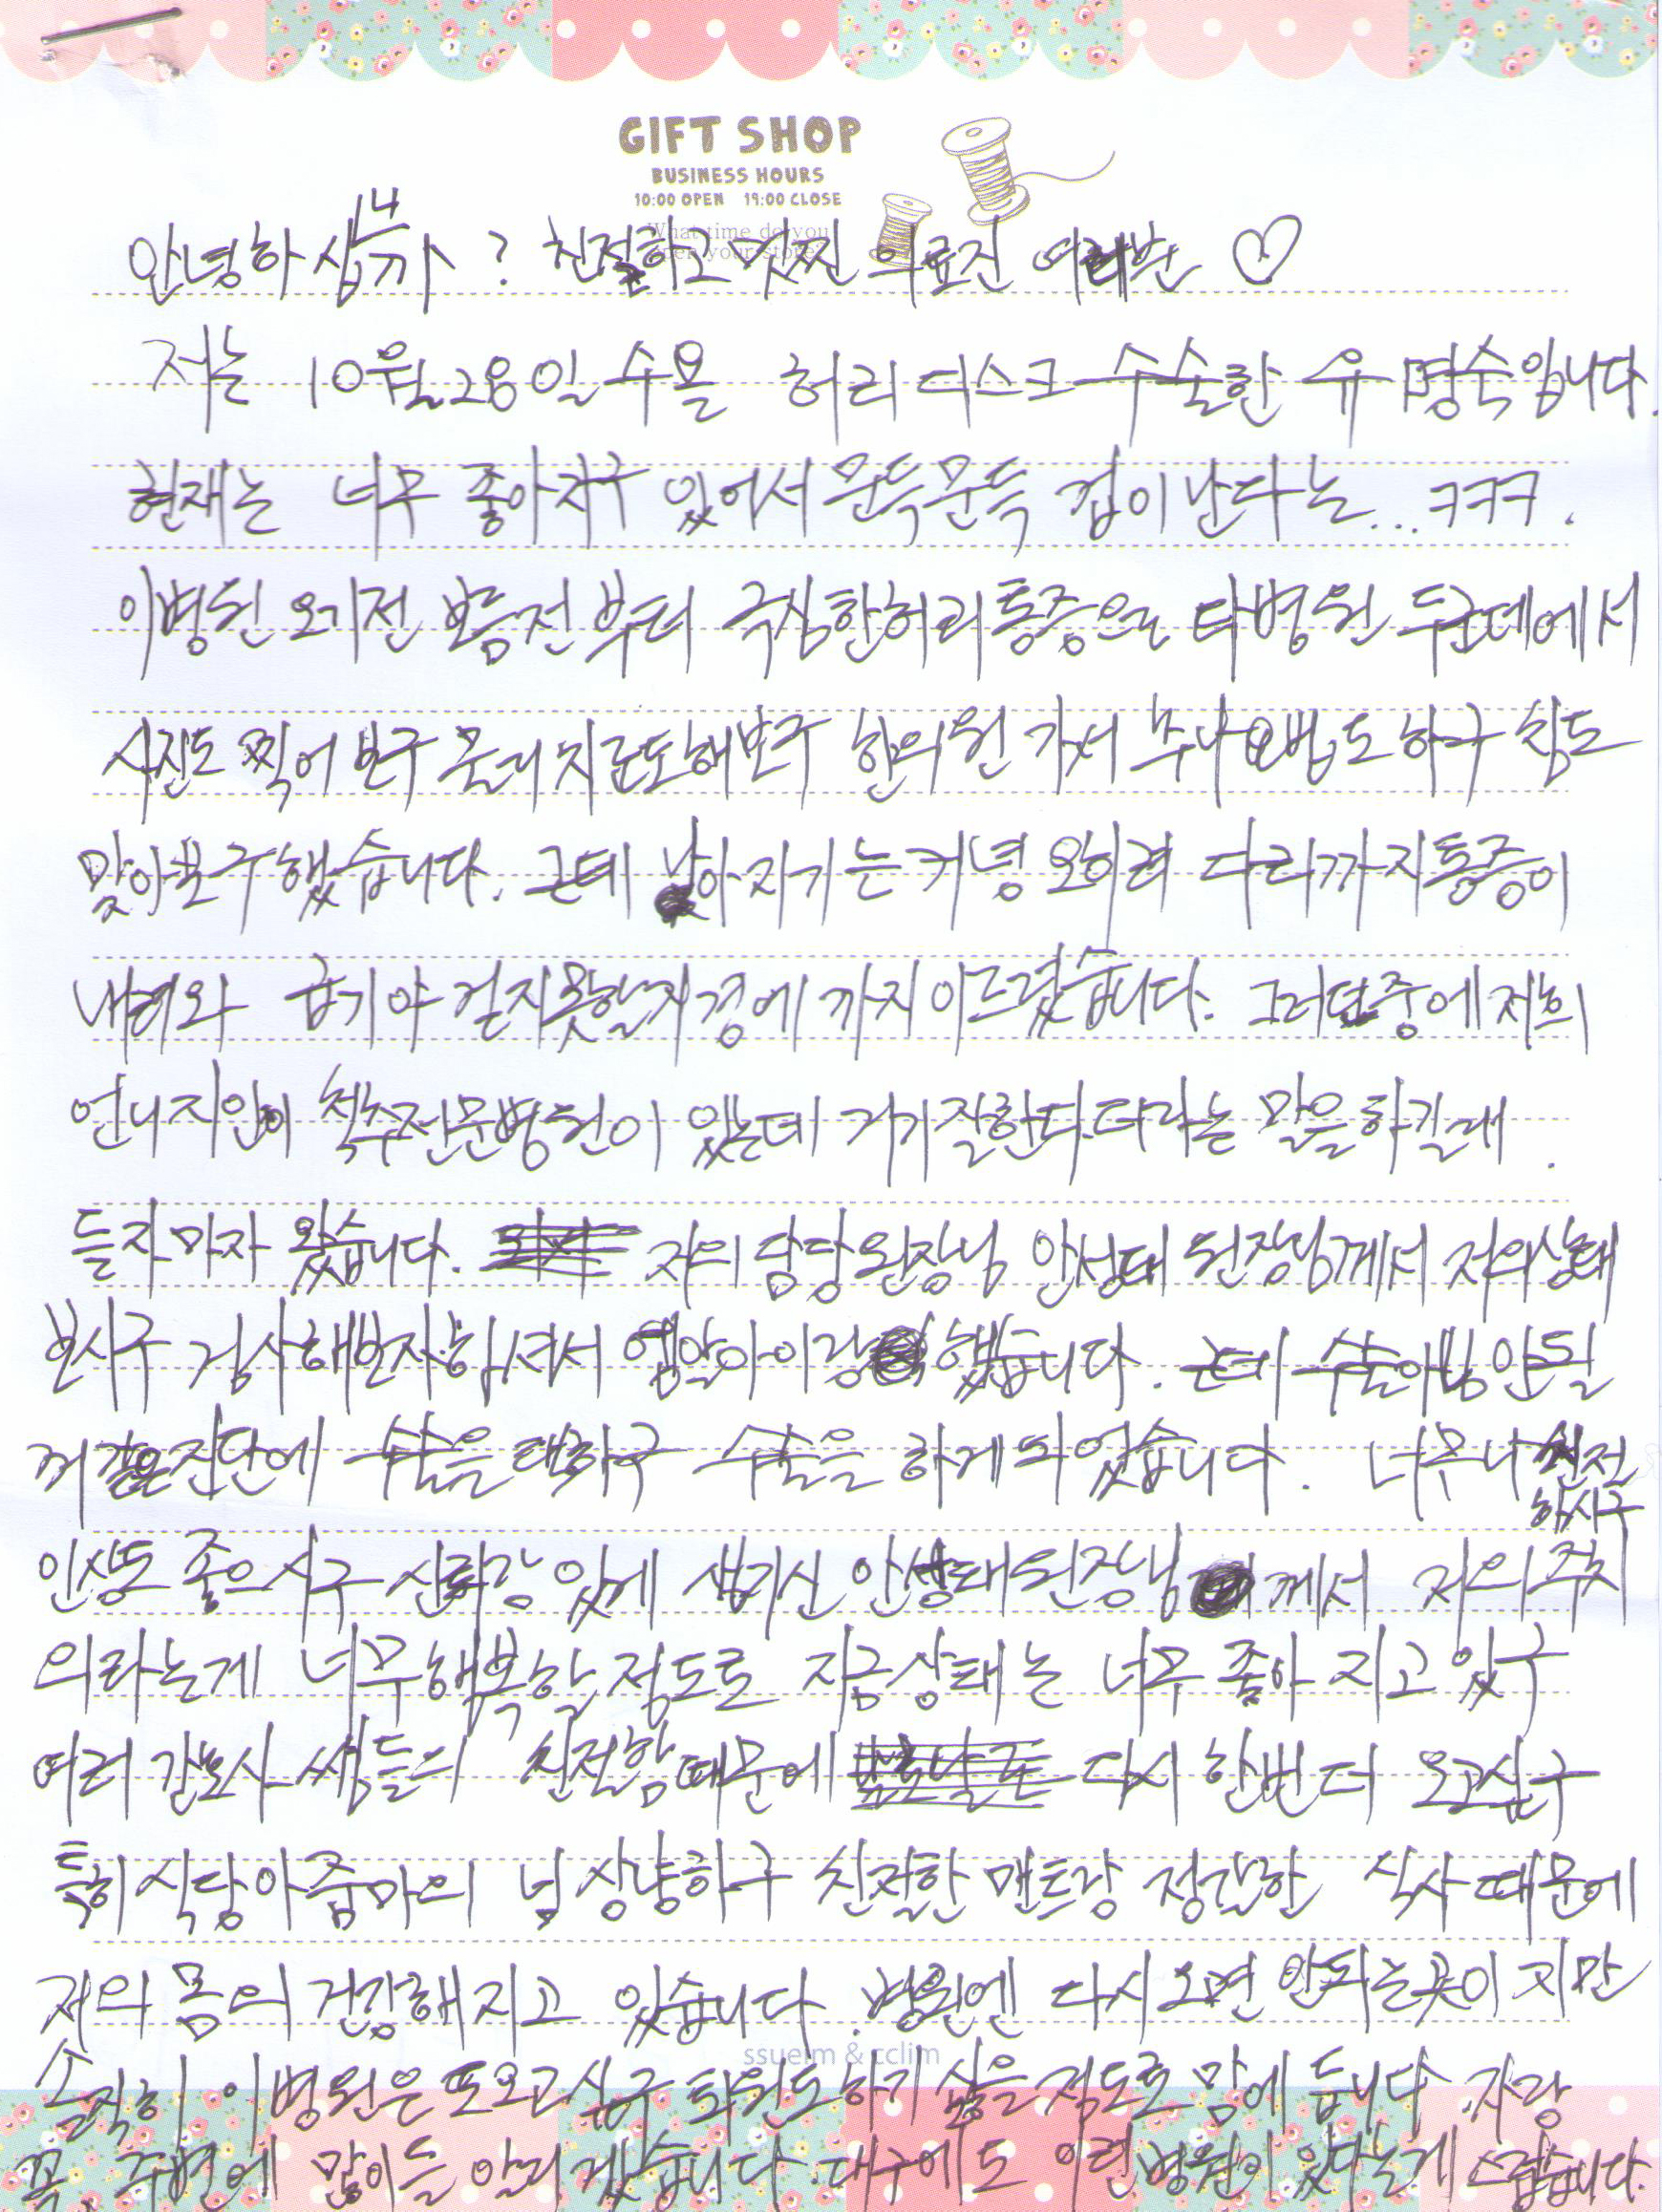 GIFT SHOP
BUSINESS HOURS
10:00 OPEN 19:00 CLOSE
What time do you
open your store?
안녕하십니까? 친절하고 멋찐 의료진 여러분 ♡
저는 10월28일 수요일 허리디스크 수술한 유명숙입니다.
현재는 너무 좋아지구 있어서 문득문득 겁이난다는...ㅋㅋㅋ.
이병원 오기전 보름전부터 극심한허리통증으로 타병원 두군데에서
사진도 찍어보구 물리치료도해보구 한의원가서 추나요법도하구 침도
맞아보구했습니다. 근데 낳아지기는커녕 오히려 다리까지통증이
내려와 급기야 걷지못할지경에까지이르렀습니다. 그러던중에저희
언니지인이 척추전문병원이 있는데 거기잘한다더라는 말을하길래.
듣자마자 왔습니다. 저의 담당원장님 안성태 원장님께서 저의상태
보시구 검사해보자하셔서 엠알아이랑 했습니다. 근데 수술아님안될
꺼같은진단에 수술을택하구 수술을 하게되었습니다. 너무나 친절
하시구
인상도 좋으시구 신뢰감있게 생기신 안성태원장님 께서 저의주치
의라는게 너무행복할정도로 지금상태는 너무 좋아지고있구
여러 간호사쌤들의 친절함때문에 다시한번더 오고싶구
특히식당아줌마의 넘상냥하구 친절한 멘트랑 정갈한 식사때문에
저의 몸의 건강해지고 있습니다. 병원엔 다시오면 안되는곳이지만
솔직히 이병원은또오고싶구 퇴원도하기싫은정도로 맘에듭니다. 자랑
꼭 주변에 많이들 알리겠습니다. 대구에도 이런병원이있다는게 스럽습니다.
ssueim & cclim